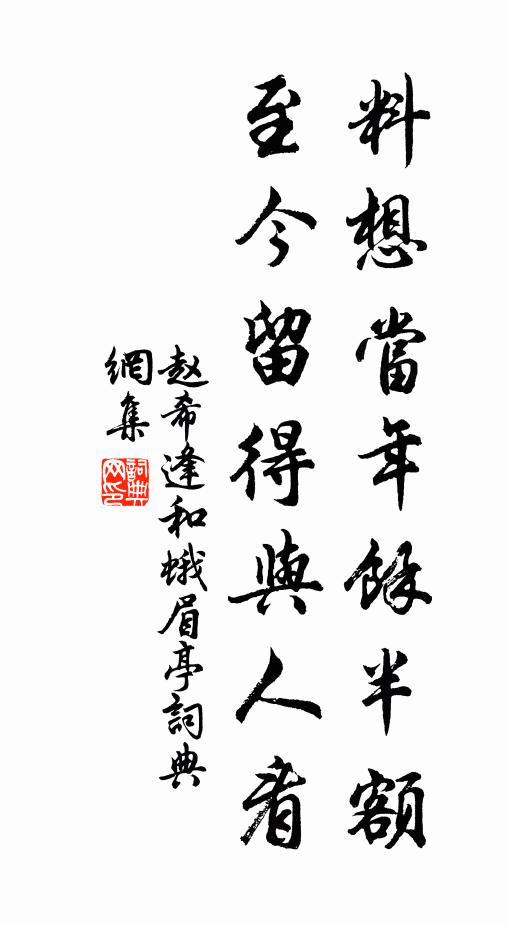 料想當年餘半額
至今留得與人看
赵希逢和蛾眉亭詞典
網集
詞典网印